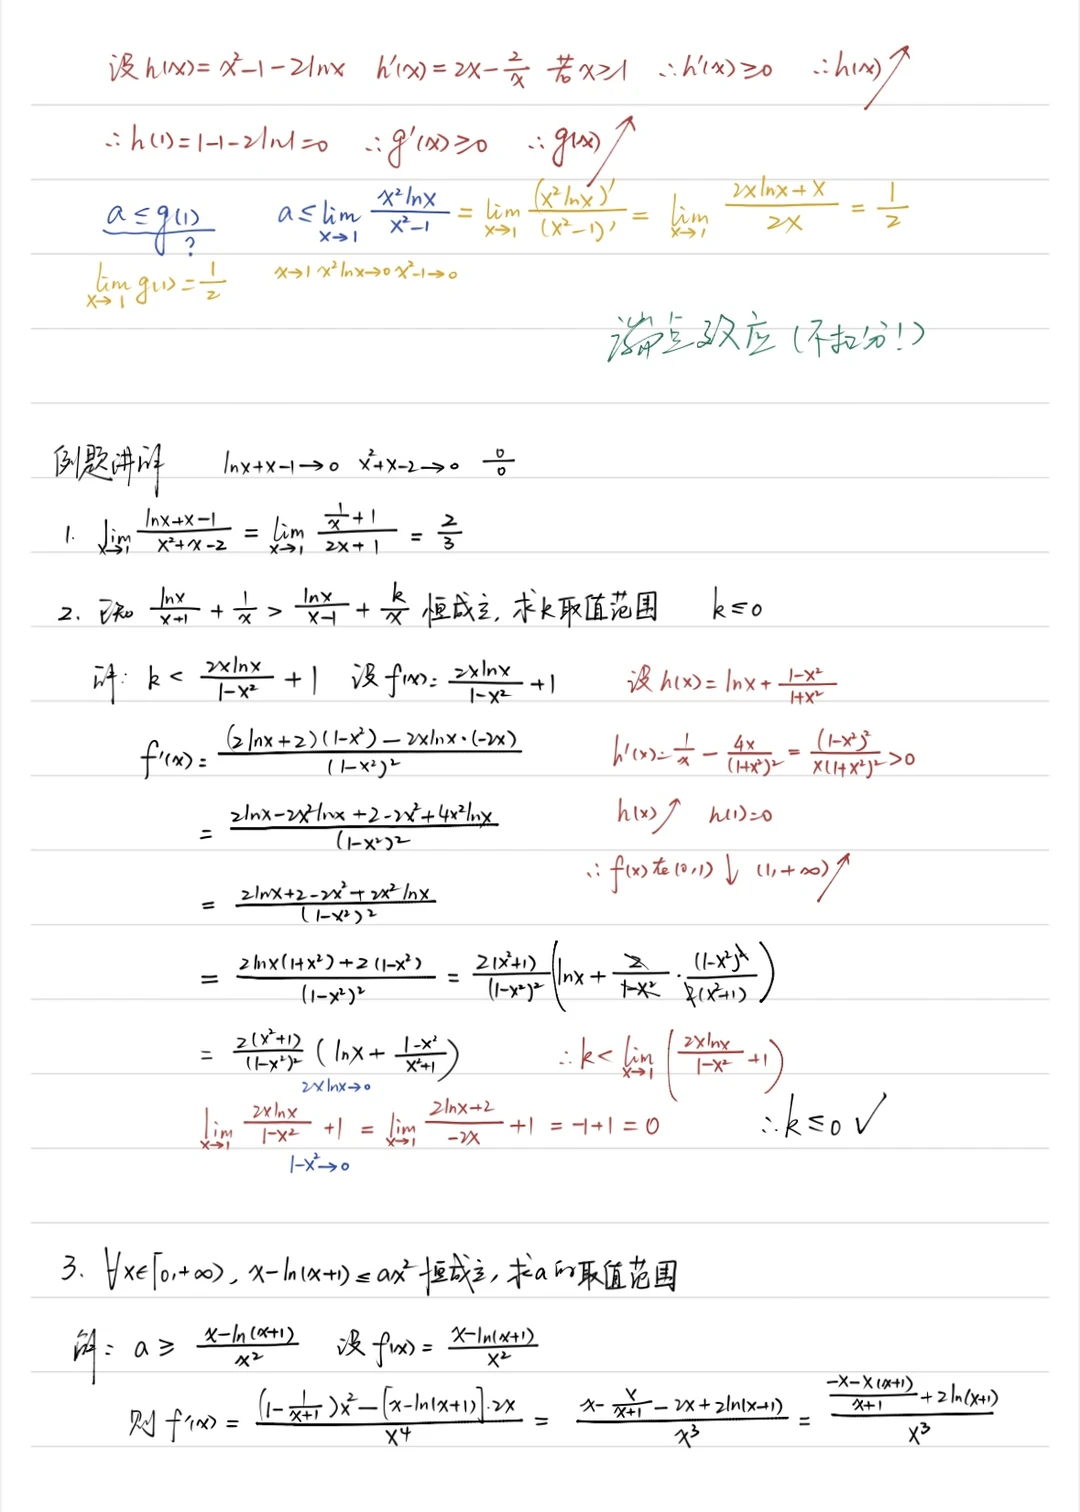 设h(x)=x²-1-2lnx h'(x)=2x-2/x 若x≥1 ∴h'(x)≥0 ∴h(x)↗
∴h(1)=1-1-2ln1=0 ∴g'(x)≥0 ∴g(x)↗
a≤g(1) ? a≤lim_{x→1} x²lnx/(x²-1) = lim_{x→1} (x²lnx)'/(x²-1)' = lim_{x→1} (2xlnx+x)/(2x) = 1/2
lim_{x→1} g(1)=1/2 x→1 x²lnx→0 x²-1→0
端点效应(不扣分!)
例题讲解 lnx+x-1→0 x²+x-2→0 0/0
1. lim_{x→1} (lnx+x-1)/(x²+x-2) = lim_{x→1} (1/x+1)/(2x+1) = 2/3
2. 已知 lnx/(x+1) + 1/x > lnx/(x-1) + k/x 恒成立, 求k取值范围 k≤0
解: k < 2xlnx/(1-x²) + 1 设f(x)= 2xlnx/(1-x²) +1 设h(x)=lnx+(1-x²)/(1+x²)
f'(x)= ((2lnx+2)(1-x²)-2xlnx·(-2x))/(1-x²)² h'(x)=1/x - 4x/(1+x²)² = (1-x²)²/(x(1+x²)²) >0
= (2lnx-2x²lnx+2-2x²+4x²lnx)/(1-x²)² h(x)↗ h(1)=0
∴f(x)在(0,1)↓ (1,+∞)↗
= (2lnx+2-2x²+2x²lnx)/(1-x²)²
= (2lnx(1+x²)+2(1-x²))/(1-x²)² = 2(x²+1)/(1-x²)² (lnx + 2/(1-x²) · (1-x²)²/(2(x²+1)))
= 2(x²+1)/(1-x²)² (lnx + (1-x²)/(x²+1)) ∴k<lim_{x→1} (2xlnx/(1-x²) +1)
2xlnx→0
lim_{x→1} 2xlnx/(1-x²) +1 = lim_{x→1} (2lnx+2)/(-2x) +1 = -1+1 = 0 ∴k≤0 √
1-x²→0
3. ∀x∈[0,+∞), x-ln(x+1)≤ax² 恒成立, 求a的取值范围
解: a≥ (x-ln(x+1))/x² 设f(x)= (x-ln(x+1))/x²
则f'(x)= ((1-1/(x+1))x²-[x-ln(x+1)]·2x)/x⁴ = (x-x/(x+1)-2x+2ln(x+1))/x³ = ((-x-x(x+1))/(x+1)+2ln(x+1))/x³